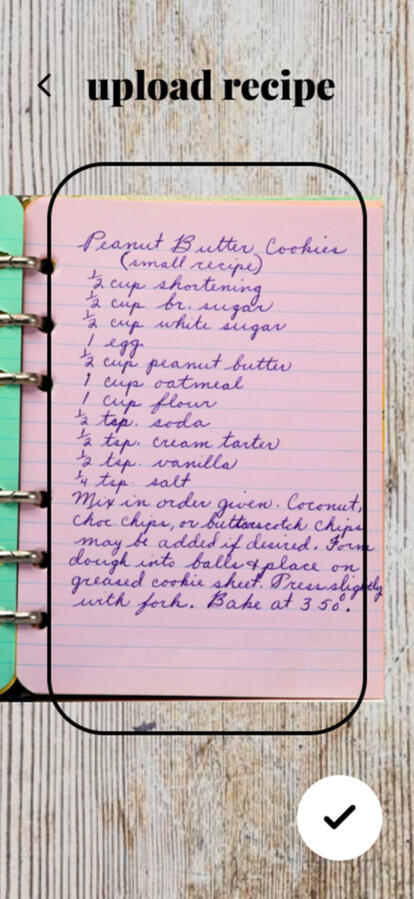 upload recipe
Peanut Butter Cookies
(small recipe)
½ cup shortening
½ cup br. sugar
½ cup white sugar
1 egg
½ cup peanut butter
1 cup oatmeal
1 cup flour
½ tsp. soda
½ tsp. cream tarter
½ tsp. vanilla
¼ tsp. salt
Mix in order given. Coconut,
choc chips, or butterscotch chips
may be added if desired. Form
dough into balls & place on
greased cookie sheet. Press slightly
with fork. Bake at 350°.